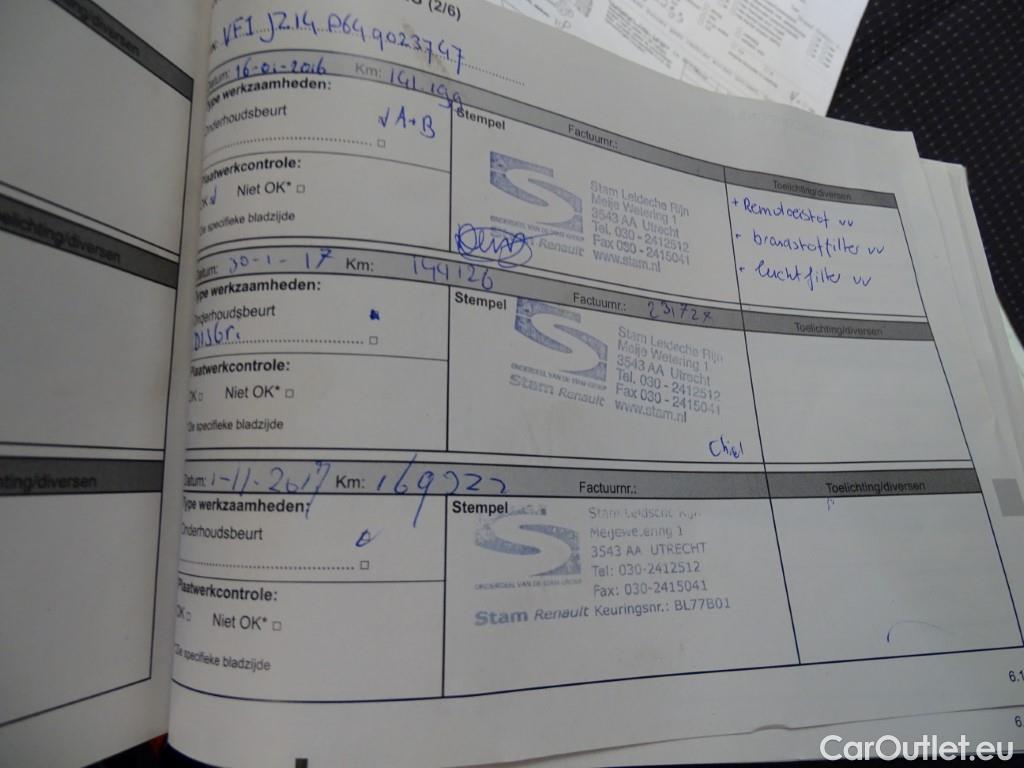 (2/6)
VF1 JZ14 P649023747
Datum: 16-01-2016 Km: 141.199
Type werkzaamheden:
Onderhoudsbeurt
√ A+B
Plaatwerkcontrole:
OK √ Niet OK* □
De specifieke bladzijde
Stempel
Factuurnr.:
Stam Leidsche Rijn
Meije Wetering 1
3543 AA Utrecht
Tel. 030 - 2412512
Fax 030 - 2415041
www.stam.nl
ONDERDEEL VAN DE STAM GROEP
Renault
Toelichting/diversen
+ Remvloeistof vv
- brandstoffilter vv
- luchtfilter vv
Datum: 30-1-17 Km: 144126
Type werkzaamheden:
Onderhoudsbeurt
Plaatwerkcontrole:
OK □ Niet OK* □
De specifieke bladzijde
Stempel
Factuurnr.: 231727
Stam Leidsche Rijn
Meije Wetering 1
3543 AA Utrecht
Tel. 030 - 2412512
Fax 030 - 2415041
www.stam.nl
ONDERDEEL VAN DE STAM GROEP
Stam Renault
Chiel
Toelichting/diversen
Datum: 1-11-2017 Km: 169222
Type werkzaamheden:
Onderhoudsbeurt
Plaatwerkcontrole:
OK □ Niet OK* □
De specifieke bladzijde
Stempel
Factuurnr.:
Stam Leidsche Rijn
Meijewetering 1
3543 AA UTRECHT
Tel: 030-2412512
Fax: 030-2415041
ONDERDEEL VAN DE STAM GROEP
Stam Renault Keuringsnr.: BL77B01
Toelichting/diversen
6.1
6.
CarOutlet.eu